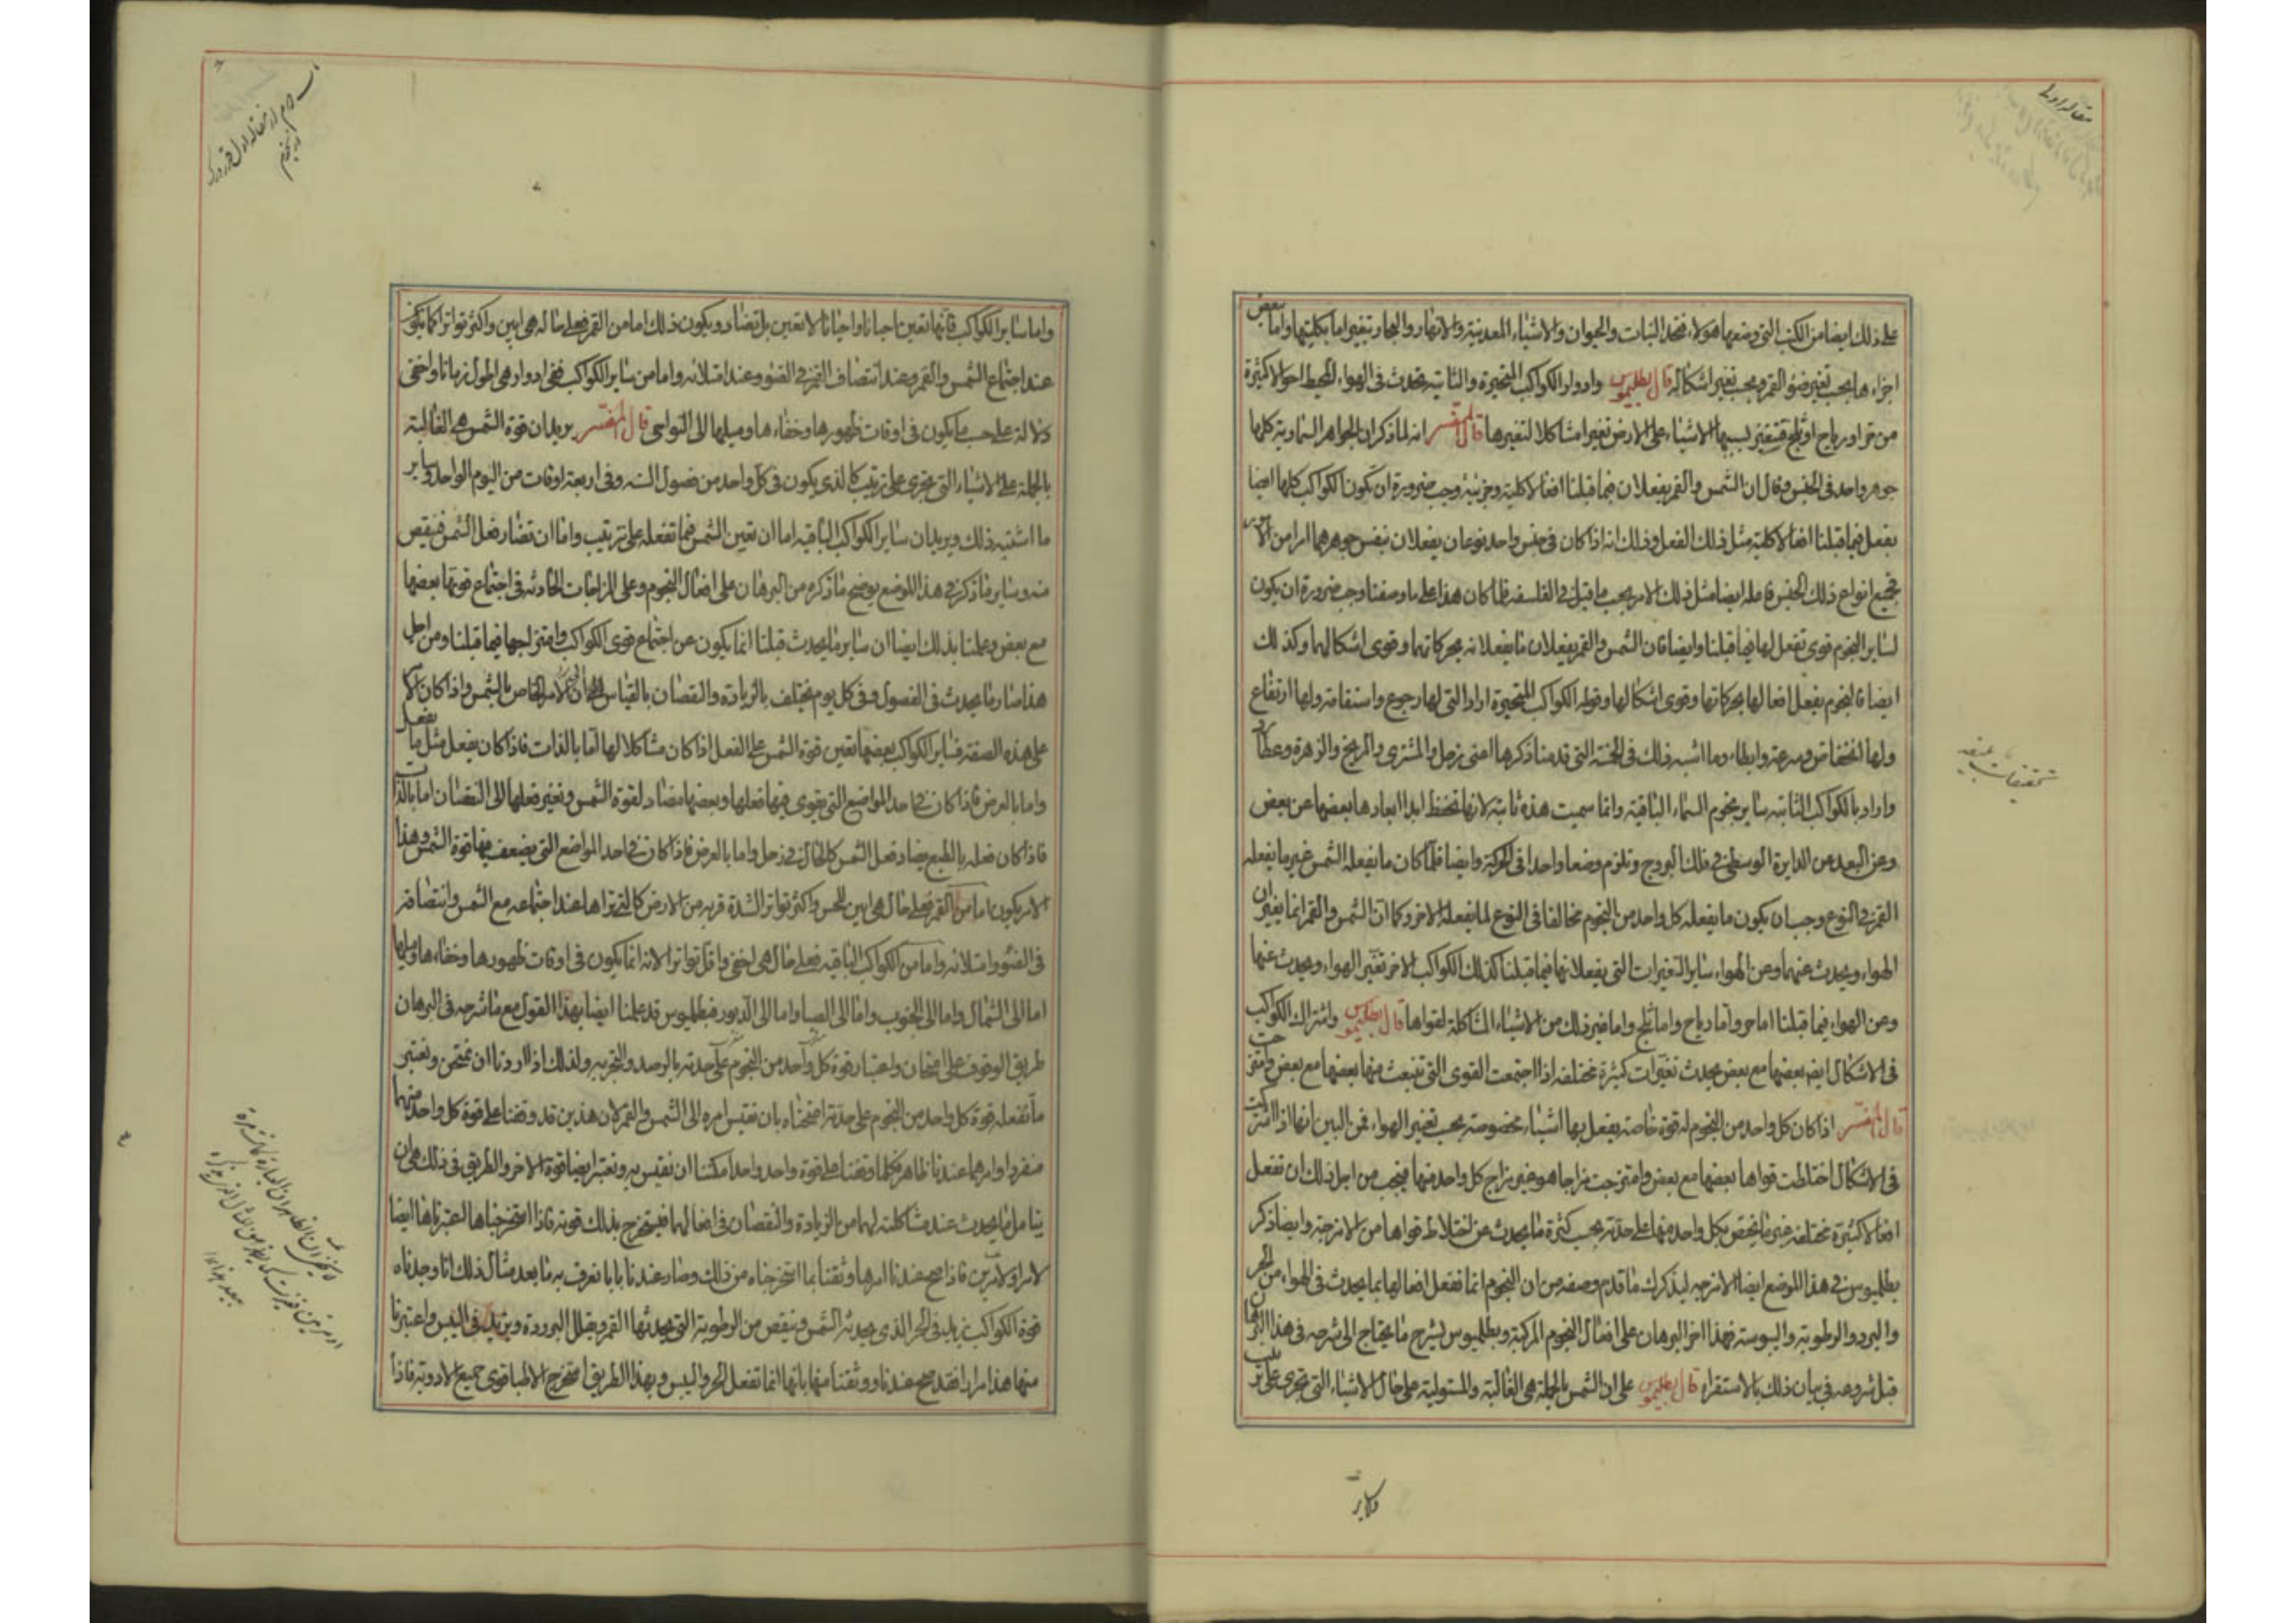 على ذلك ايضا من الكتب التى وضعها هولاء فتجد النبات والحيوان والاشياء المعدنية والانهار والبحار تتغير اما بكليتها واما بعض
اجزاءها بحسب تغير ضوء القمر وبحسب تغير اشكاله قال بطليموس وادوار الكواكب المتحيرة والثابتة تحدث فى الهواء المحيط احوالا كثيرة
من حر او رياح او ثلج فتتغير بسببها الاشياء على الارض تغيرا مشاكلا لتغيرها قال المفسر انه لما ذكر ان الجواهر السماوية كلها
جوهر واحد فى الجنس وقال ان الشمس والقمر يفعلان فيما قبلنا افعالا كلية وجزئية وجب ضرورة ان تكون الكواكب كلها ايضا
يفعل فيما قبلنا افعالا كلية مثل ذلك الفعل وذلك انه اذا كان فى جنس واحد نوعان يفعلان بنفس جوهرهما امرا من الامور
فجميع انواع ذلك الجنس فاعله ايضا مثل ذلك الامر بحسب ما قيل فى الفلسفة فلما كان هذا على ما وصفنا وجب ضرورة ان يكون
لساير النجوم قوى تفعل لها فيما قبلنا وايضا فان الشمس والقمر يفعلان ما يفعلانه بحركاتهما وقوى اشكالهما وكذلك
ايضا فالنجوم يفعل افعالها بحركاتها وقوى اشكالها وقوله الكواكب المتحيرة اراد التى لها رجوع واستقامة ولها ارتفاع
ولها انخفاض وسرعة وابطاء وما اشبه ذلك فى الخمسة التى قدمنا ذكرها اعنى زحل والمشترى والمريخ والزهرة وعطارد
واراد بالكواكب الثابته ساير نجوم السماء الباقية وانما سميت هذه ثابته لانها تحفظ ابدا ابعادها بعضها عن بعض
وعن البعد عن الدايرة الوسطى فى فلك البروج وتلزم وضعا واحدا فى الحركة وايضا فلما كان ما يفعله الشمس غير ما يفعله
القمر فى النوع وجب ان يكون ما يفعله كل واحد من النجوم مخالفا فى النوع لما يفعله الاخر وكما ان الشمس والقمر انما يغيران
الهواء ويحدث عنهما وعن الهواء ساير التغيرات التى يفعلانها فيما قبلنا كذلك الكواكب الاخر تغير الهواء ويحدث عنها
وعن الهواء فيما قبلنا اما حر واما رياح واما ثلج واما غير ذلك من الاشياء المشاكلة لقواها قال بطليموس واشتراك الكواكب
فى الاشكال ايضا بعضها مع بعض يحدث تغيرات كثيرة مختلفة اذا اجتمعت القوى التى تنبعث منها بعضها مع بعض وامتزجت
قال المفسر اذا كان كل واحد من النجوم له قوة خاصة يفعل بها اشياء مخصوصة بحسب تغير الهواء فمن البين انها اذا اشتركت
فى الاشكال اختلطت قواها بعضها مع بعض وامتزجت مزاجا هو غير مزاج كل واحد منها فيجب من اجل ذلك ان تفعل
افعالا كثيرة مختلفة غير ما يختص بكل واحد منها على حدته بحسب كثرة ما يحدث عن اختلاط قواها من الامزجة وايضا ذكر
بطليموس فى هذا الموضع ايضا الامزجه ليذكرك ما قدم وصفه من ان النجوم انما تفعل افعالها بما يحدث فى الهواء من الحر
والبرد والرطوبة واليبوسة فهذا اخر البرهان على افعال النجوم المركبة وبطليموس يشرح ما يحتاج الى شرحه فى هذا البرهان
قبل شروعه فى بيان ذلك بالاستقراء قال بطليموس على ان الشمس بالجملة هى الغالبة والمستولية على حال الاشياء التى تجرى على ترتيب
وساير
واما ساير الكواكب فانها تعين احيانا واحيانا لا تعين بل تضاد ويكون ذلك اما من القمر فعلى ما له هى ابين واكثر تواترا كما يكون
عند اجتماع الشمس والقمر وعند انتصاف القمر فى الضوء وعند امتلائه واما من ساير الكواكب ففى ادوار هى اطول زمانا واخفى
دلالة على حسب ما يكون فى اوقات ظهورها وخفاءها وميلها الى النواحى قال المفسر يريد ان قوة الشمس هى الغالبة
بالجملة على الاشياء التى تجرى على ترتيب كالذى يكون فى كل واحد من فصول السنه وفى اربعة اوقات من اليوم الواحد وساير
ما اشبه ذلك ويريد ان ساير الكواكب الباقيه اما ان تعين الشمس فيما تفعله على ترتيب واما ان تضاد فعل الشمس فتنقص
منه وساير ما ذكر فى هذا الموضع يوضح ما ذكره من البرهان على افعال النجوم وعلى المزاجات الحادثه فى اجتماع قوتها بعضها
مع بعض وعلمنا بذلك ايضا ان ساير ما يحدث قبلنا انما يكون عن اجتماع قوى الكواكب وامتزاجها فيما قبلنا ومن اجل
هذا صار ما يحدث فى الفصول وفى كل يوم مختلف بالزيادة والنقصان بالقياس الى الامر الخاص بالشمس واذا كان الامر
على هذه الصفة فساير الكواكب بعضها تعين قوة الشمس على الفعل اذا كان مشاكلا لها اما بالذات فاذا كان يفعل مثل ما يفعل
واما بالعرض فاذا كان فى احد المواضع التى يقوى فيها فعلها وبعضها مضاد لقوة الشمس وتغير فعلها الى النقصان اما بالذات
فاذا كان فعله بالطبع يضاد فعل الشمس كالحال فى زحل واما بالعرض فاذا كان فى احد المواضع التى يضعف فيها قوة الشمس وهذا
الامر يكون اما من القمر فعلى حال هى ابين للحس واكثر تواترا لشدة قربه من الارض كالتى تراها عند اجتماعه مع الشمس وانتصافه
فى الضوء وامتلائه واما من الكواكب الباقيه فعلى حال هى اخفى واقل تواترا لانه انما يكون فى اوقات ظهورها وخفاءها وميلها
اما الى الشمال واما الى الجنوب واما الى الصبا واما الى الدبور فبطليموس قد علمنا ايضا بهذا القول مع ما شرحه فى البرهان
طريق الوقوف على امتحان واعتبار قوة كل واحد من النجوم على حدته بالرصد والتجربه ولذلك اذا اردنا ان نمتحن ونعتبر
ما تفعله قوة كل واحد من النجوم على حدته امتحناه بان نقيس امره الى الشمس والقمر لان هذين قد وقفنا على قوة كل واحد منهما
منفردا وامرهما عندنا ظاهر فكلما وقفنا على قوة واحد واحد امكننا ان نقيس به ونعتبر ايضا قوة الاخر والطريق فى ذلك هى ان
يتامل ما يحدث عند مشاكلته لهما من الزيادة والنقصان فى افعالهما فيستخرج بذلك قوته فاذا استخرجناها اعتبرناها ايضا
لامر او لامرين فاذا صح عندنا امرها وثقنا بما استخرجناه من ذلك وصار عندنا بابا نعرف به ما بعد مثال ذلك انا وجدناه
قوة الكواكب يزيد فى الحر الذى يحدثه الشمس وينقص من الرطوبة التى يحدثها القمر ويقلل البرودة ويزيد فى اليبس واعتبرنا
منها هذا مرارا فقد صح عندنا ووثقنا منها بانها انما تفعل الحر واليبس وبهذا الطريق استخرج الاطبا قوى جميع الادوية فاذا